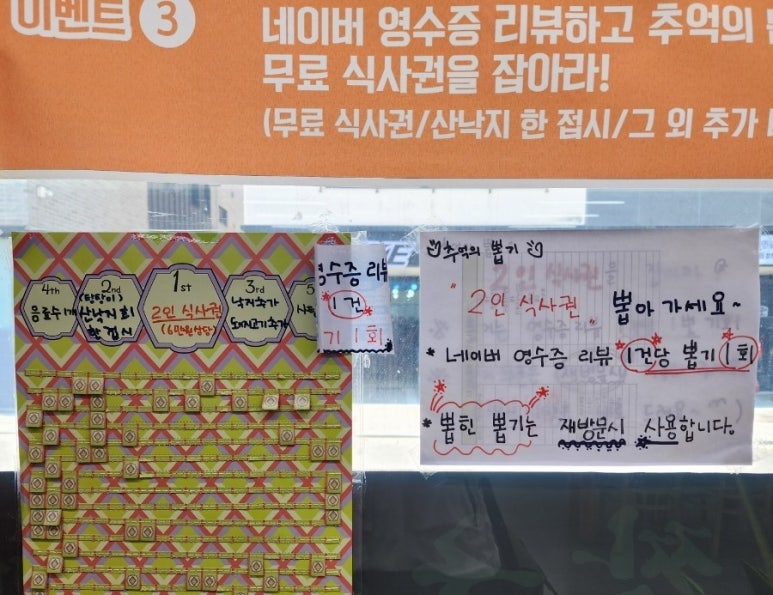 이벤트 3
네이버 영수증 리뷰하고 추억의
무료 식사권을 잡아라!
(무료 식사권/산낙지 한 접시/그 외 추가
4th
음료수 1개
2nd
(탕탕이)
산낙지 회
한 접시
1st
2인 식사권
(6만원 상당)
3rd
낙지추가
돼지고기추가
5
영수증 리뷰
1건
기 1회
추억의 뽑기
"2인 식사권" 뽑아 가세요~
* 네이버 영수증 리뷰 1건당 뽑기 1회
* 뽑힌 뽑기는 재방문시 사용합니다.